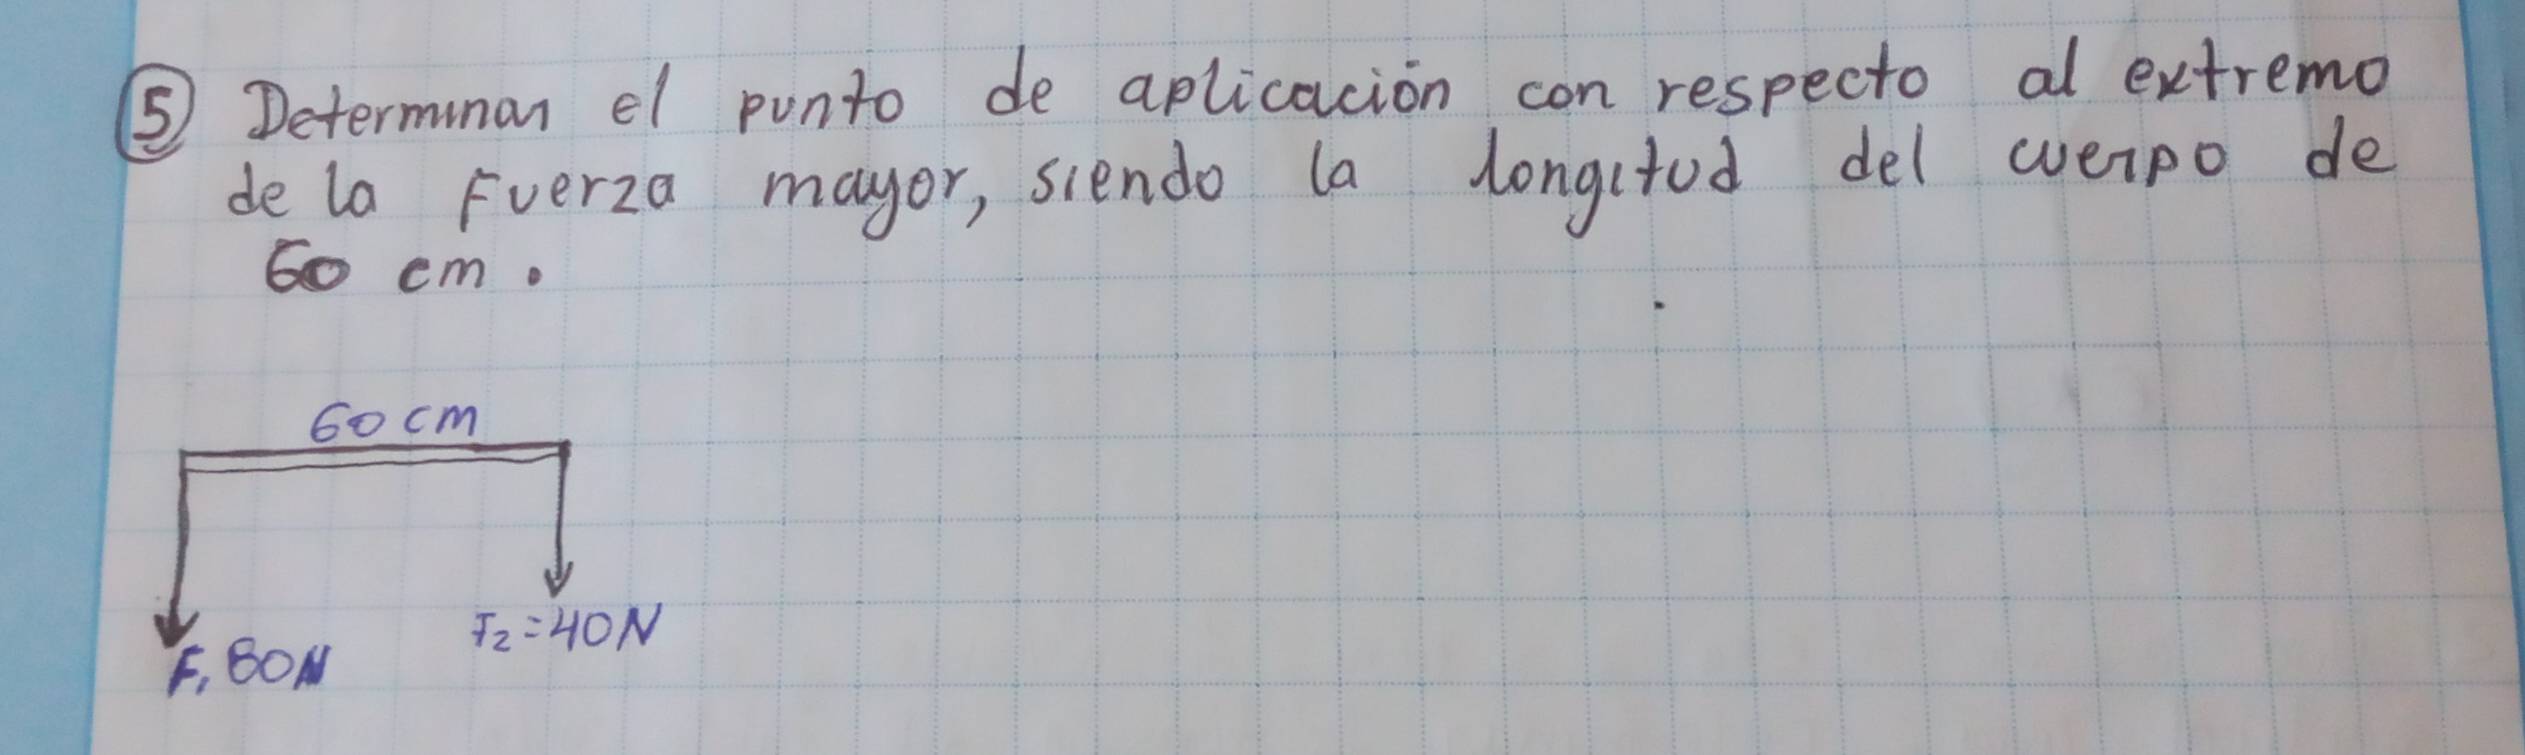 ⑤ Determinar el punto de aplicación con respecto al extremo
de la Fuerza mayor, siendo la longitud del cuerpo de
60 cm.
60 cm
F₂=40N
F₁ 80N